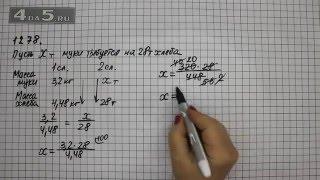 4DA5.RU
1278.
Пусть X т муки требуется на 28т хлеба
1сл. 2сл.
Масса муки 3,2кг X т
Масса хлеба 4,48кг 28т
3,2/4,48 = x/28
x = 3,2·28/4,48
x = 320·28/448
x =